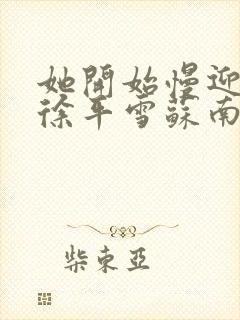 她開始慢迎
徐平雪蘇南
柴東亞